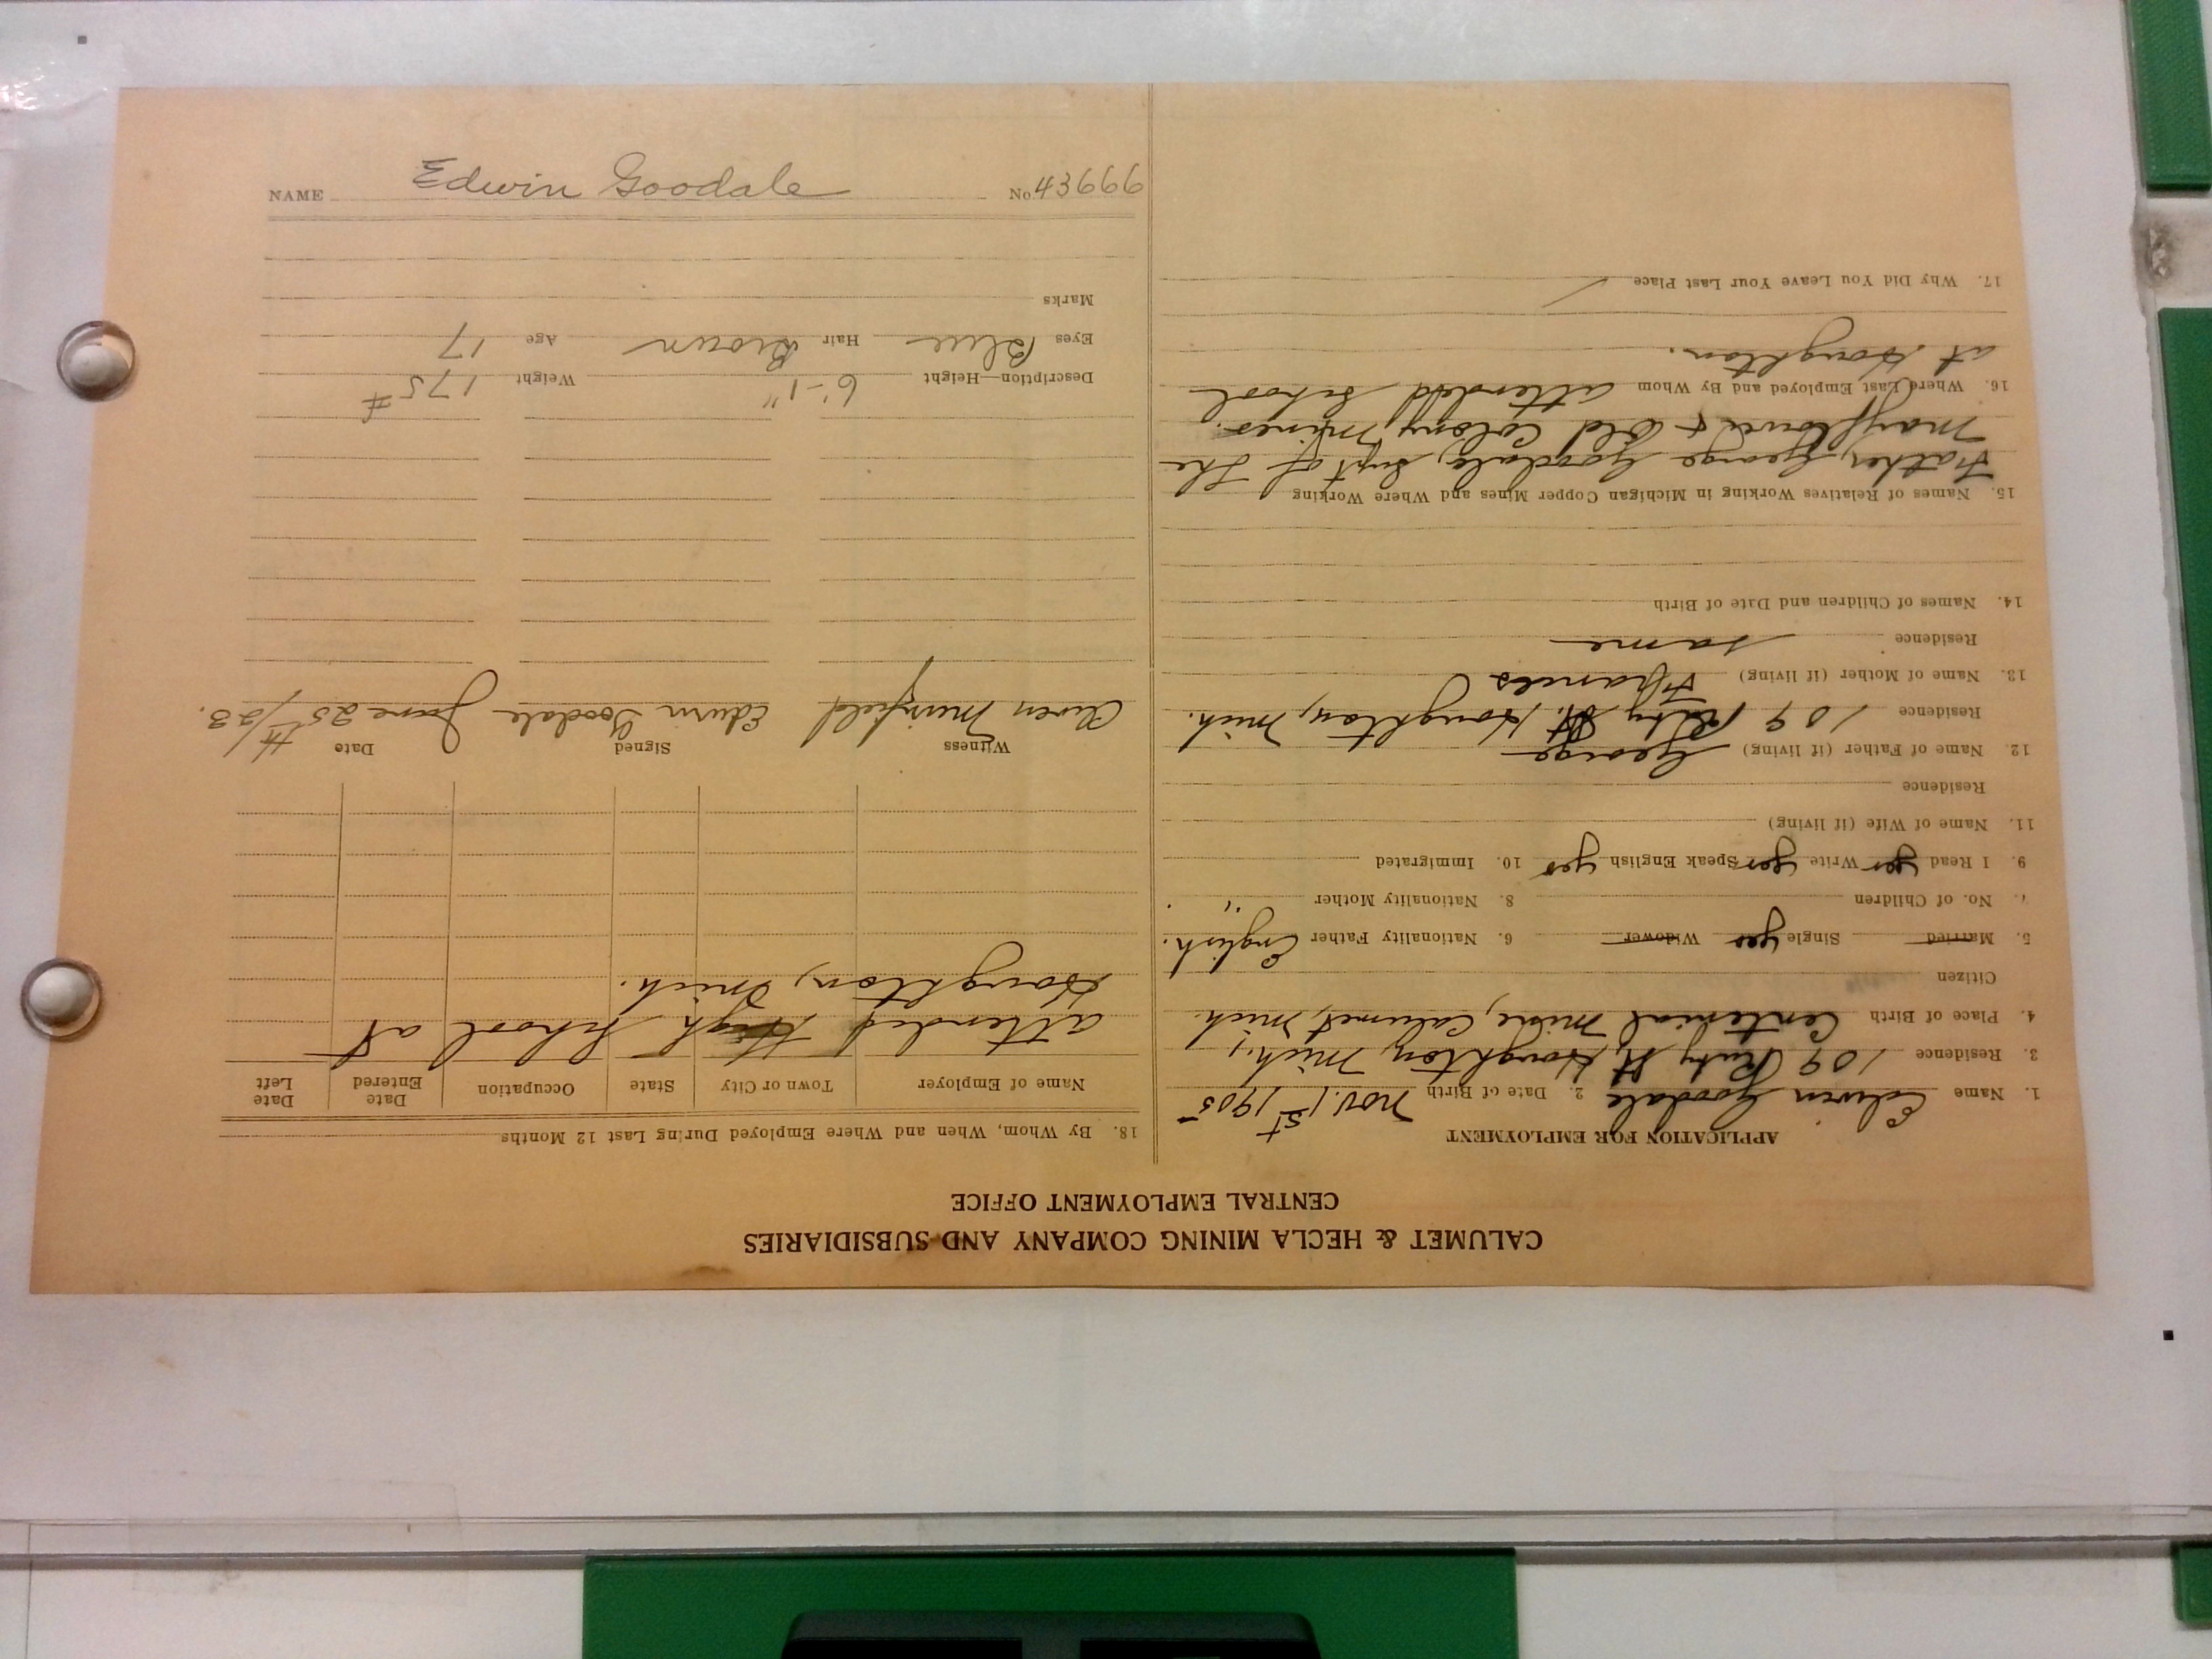 CALUMET & HECLA MINING COMPANY AND SUBSIDIARIES
CENTRAL EMPLOYMENT OFFICE
APPLICATION FOR EMPLOYMENT
1. Name Edwin Goodale 2. Date of Birth Nov. 1st 1905
3. Residence 109 Ruby St, Houghton, Mich.,
4. Place of Birth Centenial Mine, Calumet, Mich.
Citizen
5. Married Single yes Widower 6. Nationality Father English.
7. No. of Children 8. Nationality Mother "
9. I Read yes Write yes Speak English yes 10. Immigrated
11. Name of Wife (if living)
Residence
12. Name of Father (if living) George
Residence 109 Ruby St. Houghton, Mich.
13. Name of Mother (if living) Frances
Residence same
14. Names of Children and Date of Birth
15. Names of Relatives Working in Michigan Copper Mines and Where Working
Father, George Goodale, Supt of the
Mayflower & Old Colony Mines.
16. Where Last Employed and By Whom attended School
at Houghton.
17. Why Did You Leave Your Last Place
18. By Whom, When and Where Employed During Last 12 Months
Name of Employer Town or City State Occupation Date Entered Date Left
attended High School at
Houghton, Mich.
Witness Signed Date
Munfield Edwin Goodale June 25th/23.
Description—Height 6'-1" Weight 175#
Eyes Blue Hair Brown Age 17
Marks
NAME Edwin Goodale No. 43666